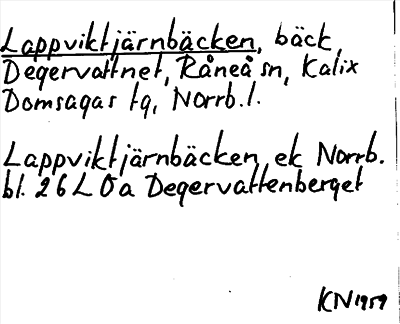 Lappviktjärnbäcken, bäck,
Degervattnet, Råneå sn, Kalix
Domsagas tg, Norrb.l.
Lappviktjärnbäcken, ek Norrb.
bl. 26 L 0a Degervattenberget
KN 1959